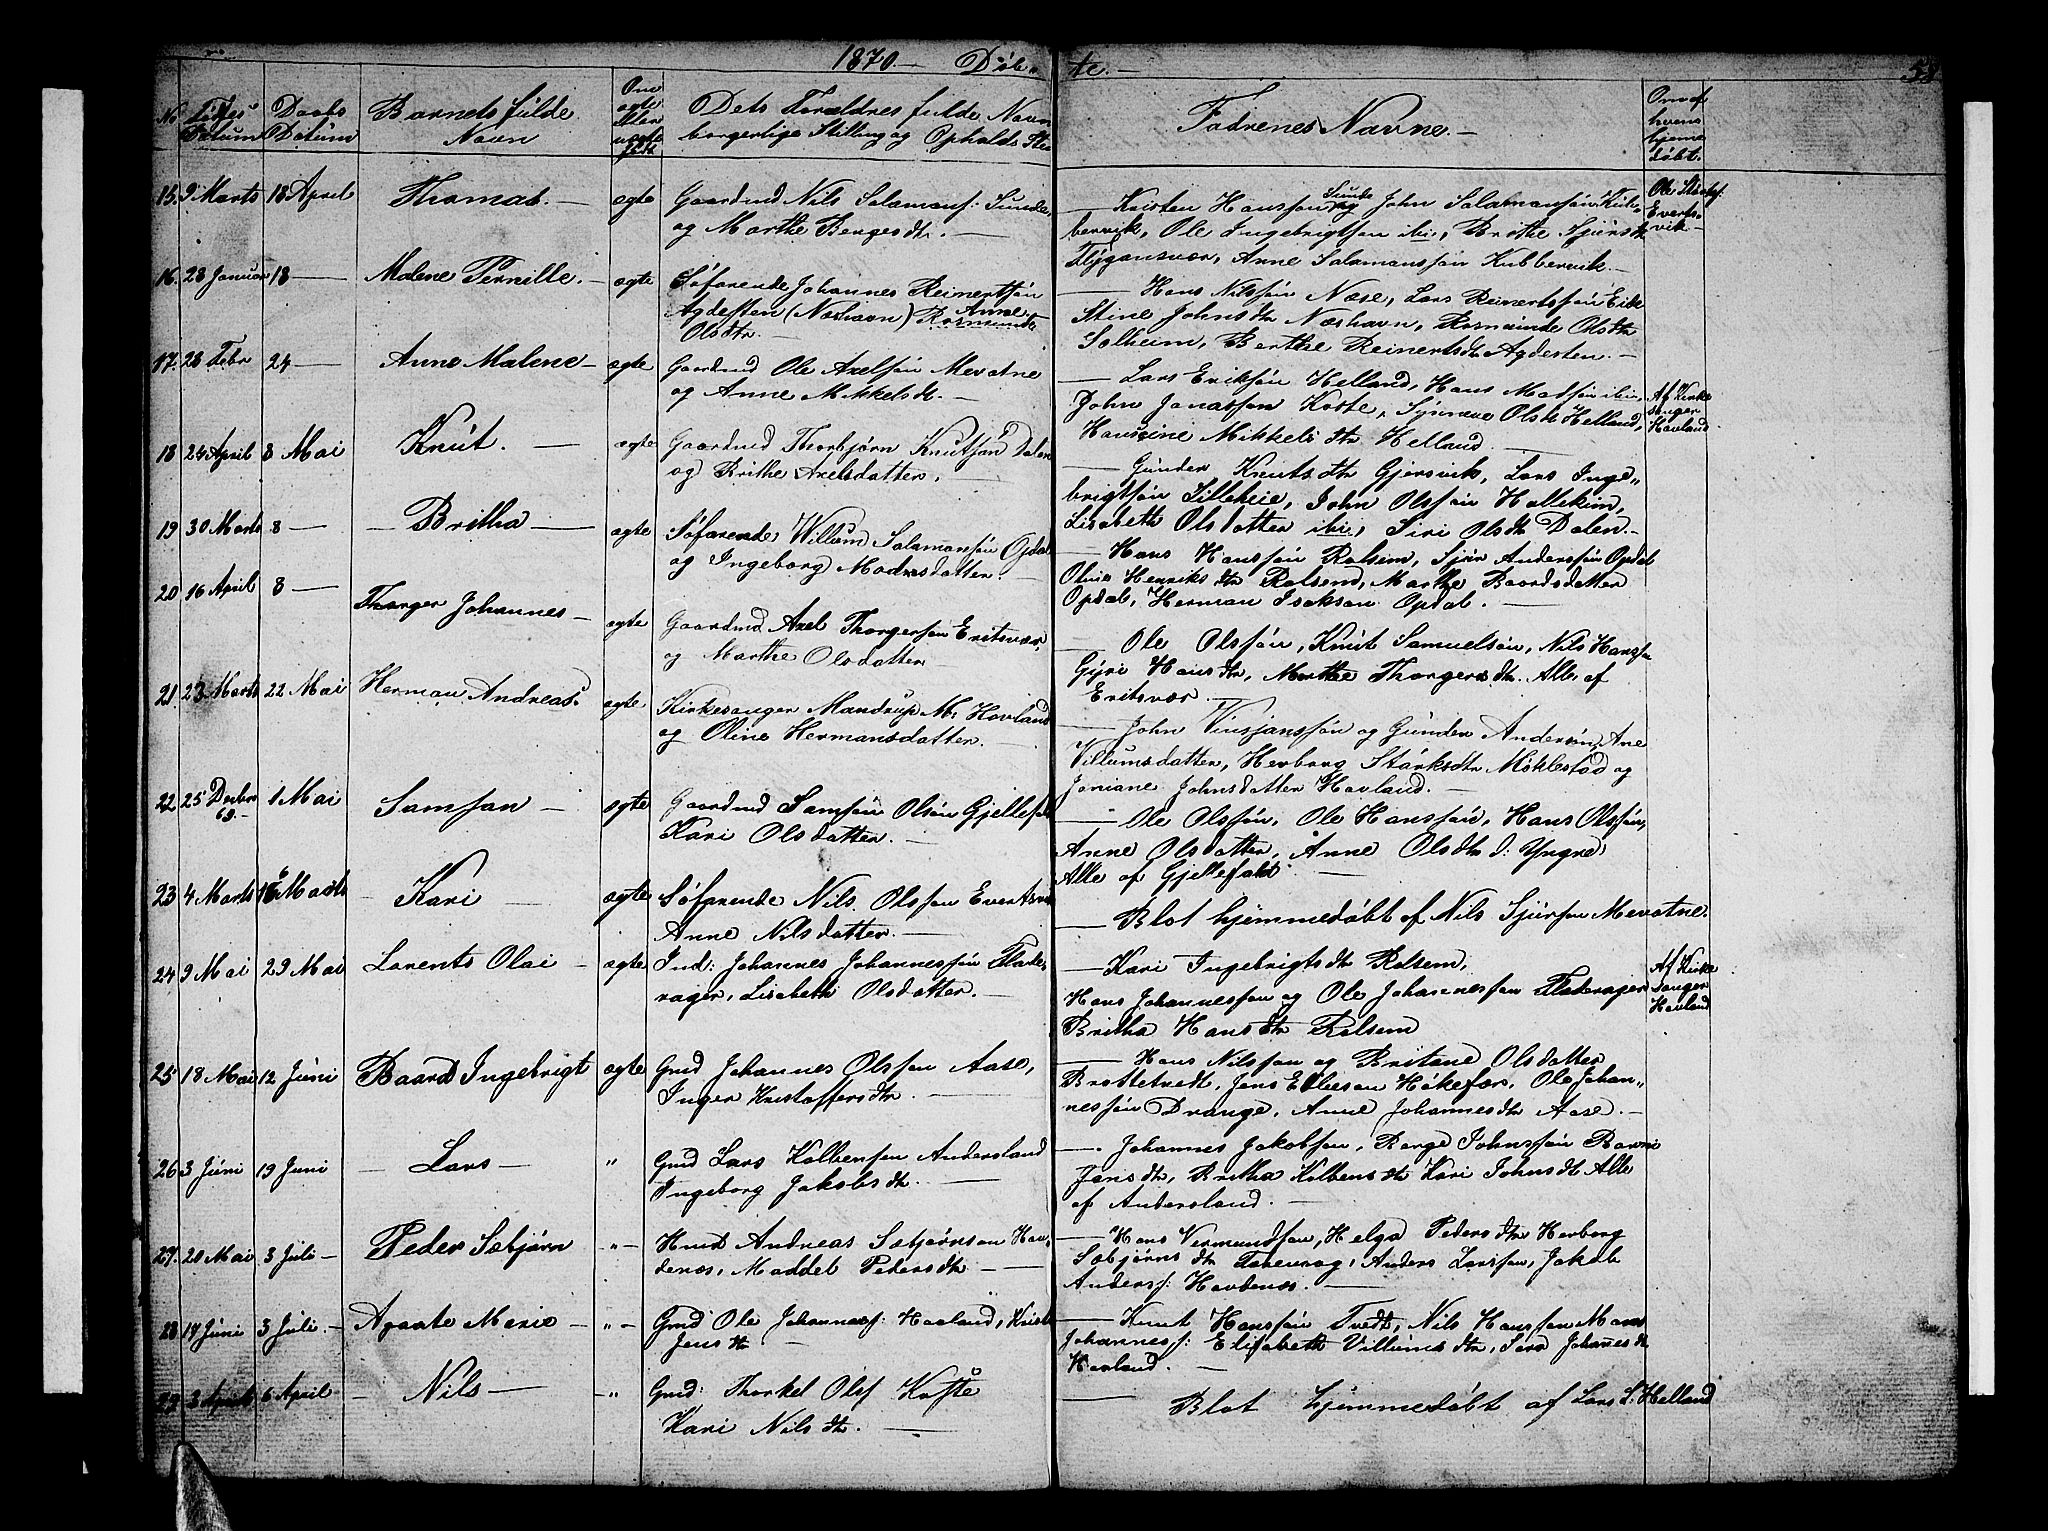 1870 — Døb„ te. —
58
No Fødsels Datum
Daabs Datum
Barnets fulde Navn
Om ægte eller uægte født
Dets Forældres fulde Navn borgerlige Stilling og Opholds Sted
Fadrenes Navne. —
Om af hvem hjemme døbt.
15. 9 Marts 18 April Thomas. — ægte Gaardmd Nils Salamons: Sunde,
og Marthe Bengesdtr. —
— Kristen Hansson Sunde John Salamonsøn Kub-
bervik, Ole Ingebrigtsøn ibi, Brithe Sjursdtr
Flygansvær, Anne Salamonsøn Kubbervik. —
Ole
Everts-
vik
16. 28 Januar 18 — Malene Pernille. — ægte Søfarende Johannes Reinertsøn
Agdesten (Næshavn) Anne Rosmunde
Olsdtr. —
— Hans Nilsøn Næse, Lars Reinertsøn Eik
Stine Johnsdtr Næshavn, Rosmunde Olsdtr
Solheim, Berthe Reinertsdtr Agdesten. —
17. 26 Febr 24 — Anne Malene — ægte Gaardmd Ole Axelsøn Mevatne
og Anne Mikkelsdt. —
— Lars Eriksøn Helland, Hans Madsøn ibi,
John Jonassøn Koste, Synneve Olsdt Helland,
Hansine Mikkelsdtr Helland —
Af Kirke
sanger
Havland
18 24 April 8 Mai Knut. — ægte Gaardmd Thorbjørn Knutsøn Dalen
og Brithe Axelsdatter.
— Gunder Knutsdtr Gjersvik, Lars Inge„
brigtsøn Lilleheie, John Olssøn Hallekim,
Lisabeth Olsdatter ibi, Siri Olsdt Dalen. —
19 30 Marts 8 — Britha — ægte Søfarende, Willum Salamonsøn Opdal
og Ingeborg Madnsdatter. —
— Hans Hanssøn Ralsem, Sjur Anderssøn Opdal
Oline Henriksdtr Ralsem, Marthe Baardsdatter
Opdal, Herman Isaksøn Opdal. —
20 16 April 8 — Thorger Johannes — ægte Gaardmd Axel Thorgersøn Eritsvær,
og Marthe Olsdatter
— Ole Olssøn, Knut Samuelsøn, Nils Hanssn
Gyri Hansdtr, Merthe Thorgersdtr. Alle af
Eritsvær —
21 23 Marts 22 Mai Herman Andreas. ægte Kirkesanger Mandrup M. Hovland
og Oline Hermansdatter. —
— John Vinsjanssøn og Gunder Andersøn, Ane
Villumsdatter, Herborg Størksdtr Møklestad og
Joniane Johnsdatter Havland. —
22 25 Decbr 69. — 1 Mai Samson — ægte Gaardmd Samson Olsøn Gjellefal
Kari Olsdatter. —
— Ole Olssøn, Ole Hanssøn, Hans Olssøn,
Anne Olsdatter, Anne Olsdtr d: Yngre
Alle af Gjellefald
23 4 Marts 16 Marts Kari — ægte Søfarende Nils Olssøn Evertsvik
Anne Nilsdatter. —
— Blot hjemmedøbt af Nils Sjursøn Mevatne.
24 9 Mai 29 Mai Lorents Olai — ægte Ind: Johannes Johannessøn Flade„
rager, Lisabeth Olsdatter. —
— Kari Ingebrigtsdtr Ralsem,
Hans Johannessøn og Ole Johannessøn Fladerager
Britha Hansdtr Ralsem
Af Kirke
sanger
Havland
25 18 Mai 12 Juni Baard Ingebrigt ægte Gmd Johannes Olssøn Aase,
Inger Kristoffersdtr. —
— Hans Nilssøn og Britane Olsdatter
Brattetvedt, Jens Elleesen Håkefær, Ole Johan„
nessøn Drange, Anne Johannesdtr Aase. —
26 3 Juni 19 Juni — Lars — „ Gmd Lars Kolbensøn Andersland
Ingeborg Jakobsdt. —
—. Johannes Jakobsøn, Børge Johnssøn
Jensdtr, Britha Kolbensdtr Kari Johnsdt Alle
af Andersland. —
27. 20 Mai 3 Juli — Peder Sæbjørn „— Hmd Andreas Sæbjørnsøn Hav„
denæs, Maddel Pedersdtr —
— Hans Vermundsøn, Helga Pedersdtr Herborg
Sæbjørnsdtr Tarevaag, Anders Larssøn, Jakob
Anders: Havdenæs. —
28 14 Juni 3 Juli. — Agaate Marie — „— Gmd Ole Johanness: Haaland, Kristi
Jensdt —
— Knut Hanssøn Tvedt, Nils Hanssøn Mons
Johannes: Elisabeth Villumsdtr, Sara Johanesdt
Havland. —
29 3 April 6 April — Nils — „ Gmd: Thorkel Olsf Kaste
Kari Nilsdtr. —
— Blot hjemmedøbt af Lars S. Helland